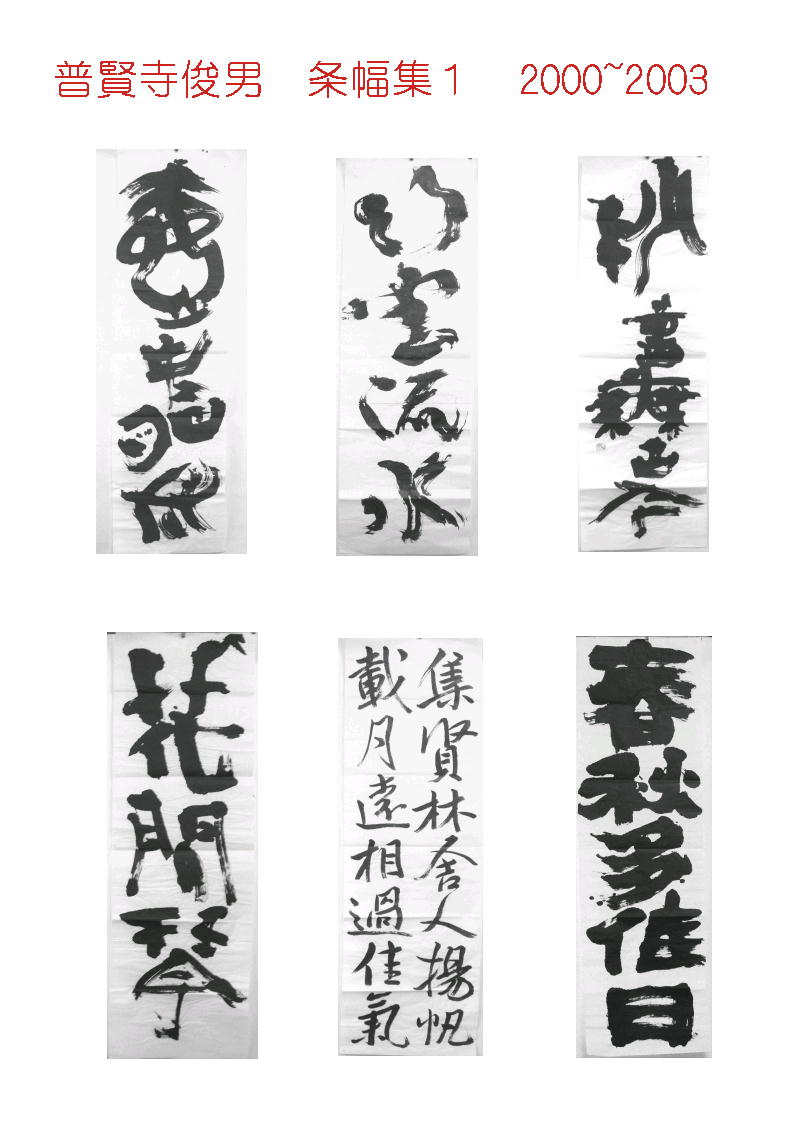 普賢寺俊男　条幅集1　2000~2003
行雲流水
花間琴
集賢林舎人揚帆
載月遠相過佳氣
春秋多佳日